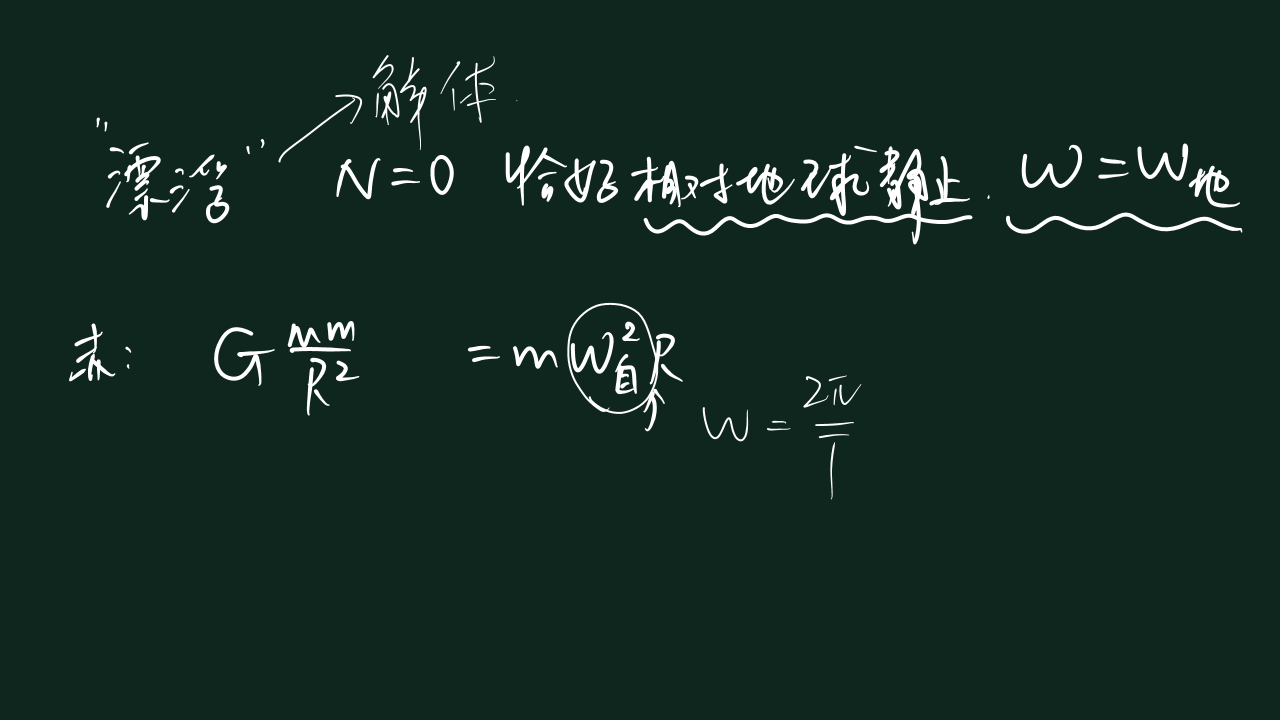 解体.
"漂浮" N=0 恰好相对地球静止. W=W地
赤: G Mm/R² =mW自²R
W = 2π/T